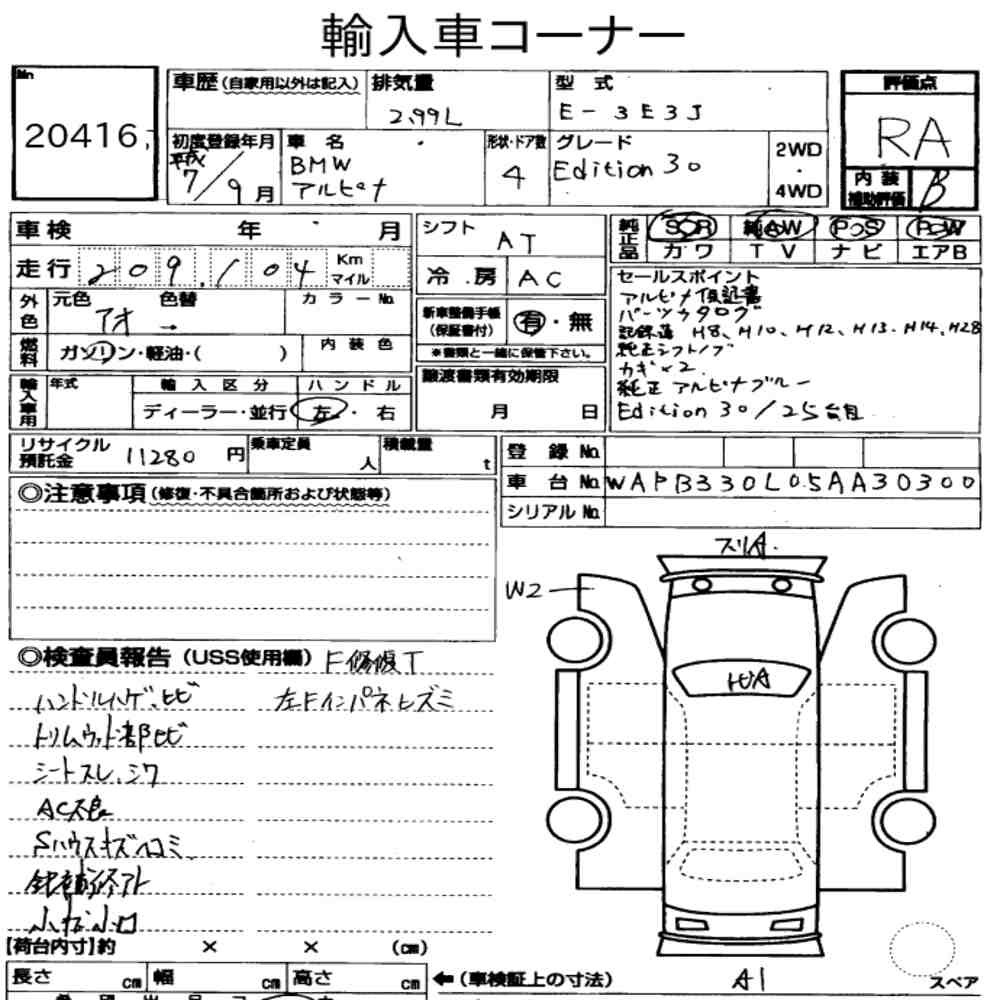 輸入車コーナー
No
20416
車歴(自家用以外は記入)
排気量
2.99L
型式
E-3E3J
評価点
RA
初度登録年月
平成7/9月
車名
BMW
アルピナ
形状・ドア数
4
グレード
Edition 30
2WD
・
4WD
内装
補助評価
B
車検 年 月
シフト
AT
純正品
SR 純AW PS PW
カワ TV ナビ エアB
走行 209,104 Km マイル
冷房 AC
外色
元色 色替
アオ →
カラーNo
燃料
ガソリン・軽油・( )
内装色
新車整備手帳
(保証書付)
有・無
※書類と一緒に保管下さい。
セールスポイント
アルピナ保証書
パーツカタログ
記録簿 H8、H10、H12、H13、H14、H28
純正シフトノブ
カギ×2
純正アルピナブルー
Edition 30/25台目
輸入車用
年式
輸入区分
ディーラー・並行
ハンドル
左・右
譲渡書類有効期限
月 日
リサイクル
預託金
11280円
乗車定員
人
積載量
t
登録No
車台No WAPB330L05AA30300
シリアルNo
◎注意事項(修復・不具合箇所および状態等)
◎検査員報告(USS使用欄) F修復T
ハンドルハゲ、ヒビ 左Fインパネヒズミ
トリムウッド部ヒビ
シートスレ、シワ
AC不良
Sハウスキズヘコミ
W2
A1
【荷台内寸】約 × × (cm)
長さ cm 幅 cm 高さ cm
←(車検証上の寸法)
スペア